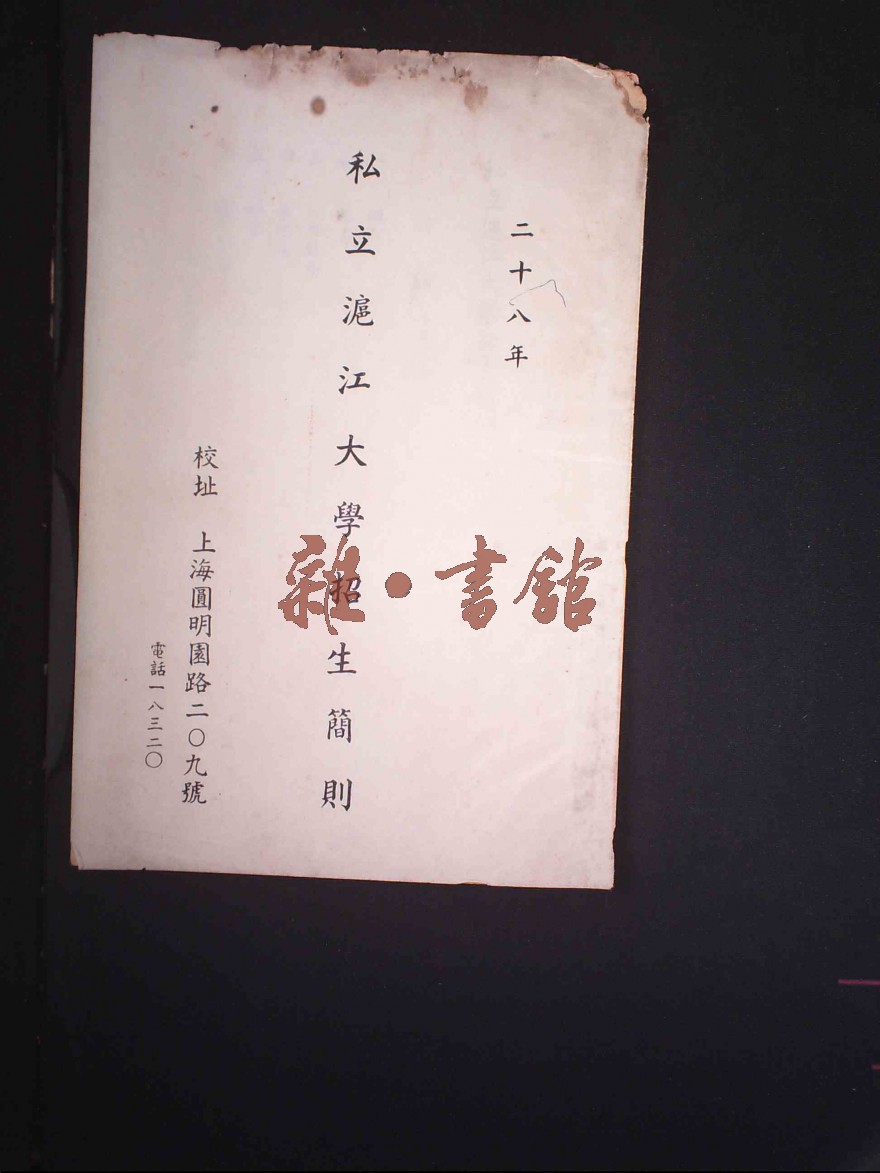 二十八年
私立滬江大學招生簡則
校址 上海圓明園路二〇九號
電話一八三二〇
雜·書館